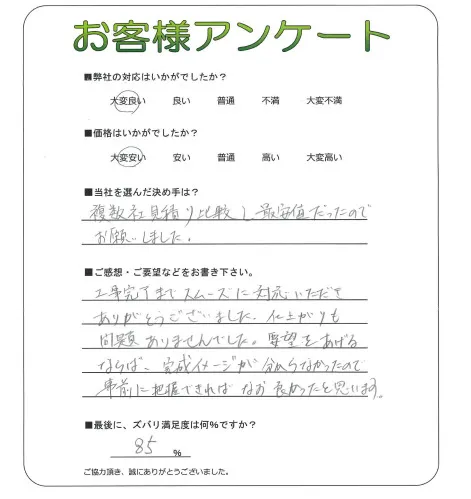 お客様アンケート
■弊社の対応はいかがでしたか？
大変良い 良い 普通 不満 大変不満
■価格はいかがでしたか？
大変安い 安い 普通 高い 大変高い
■当社を選んだ決め手は？
複数社見積り比較し最安値だったので
お願いしました。
■ご感想・ご要望などをお書き下さい。
工事完了までスムーズに対応いただき
ありがとうございました。仕上がりも
問題ありませんでした。要望をあげる
ならば、完成イメージが分からなかったので
事前に把握できればなお良かったと思います。
■最後に、ズバリ満足度は何％ですか？
85 ％
ご協力頂き、誠にありがとうございました。